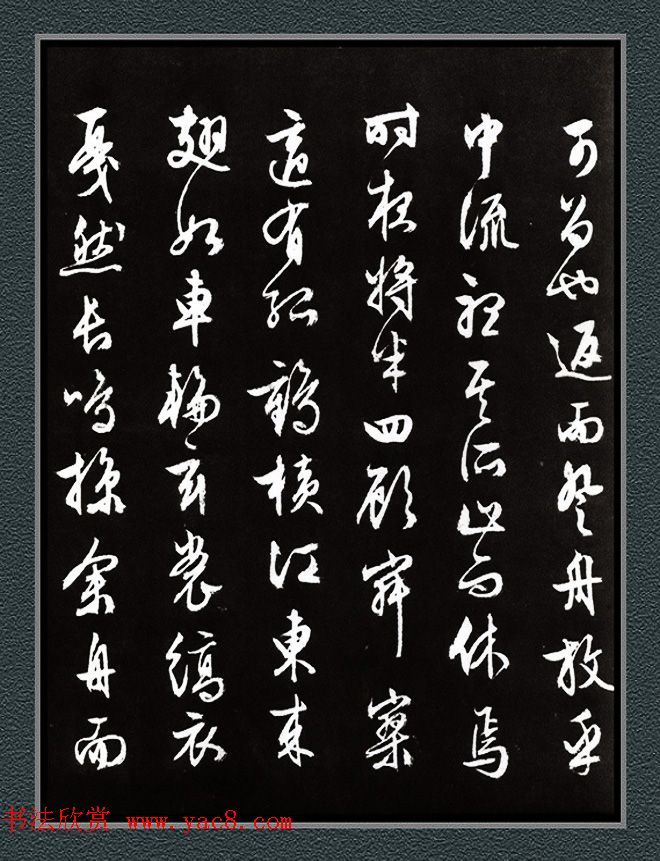 可留也返而登舟放乎
中流聽其所止而休焉
時夜將半四顧寂寥
適有孤鶴橫江東來
翅如車輪玄裳縞衣
戛然長鳴掠余舟而
书法欣赏 www.yac8.com